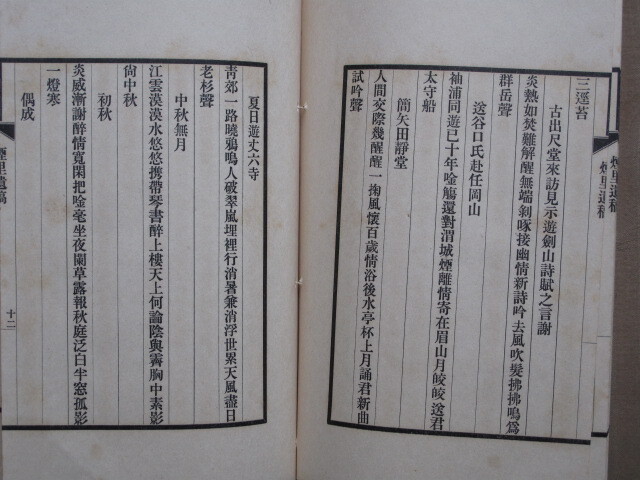 煙里遺稿
三逕苔
古出尺堂來訪見示遊劍山詩賦之言謝
炎熱如焚難解醒無端剝啄接幽情新詩吟去風吹髮拂拂鳴為
群岳聲
送谷口氏赴任岡山
袖浦同遊已十年唫觴還對渭城煙離情寄在眉山月皎皎送君
太守船
簡矢田靜堂
人間交際幾醒醒一掬風懷百歲情浴後水亭杯上月誦君新曲
試吟聲
夏日遊丈六寺
青郊一路曉鴉鳴人破翠嵐埋裡行消暑兼消浮世累天風盡日
老杉聲
中秋無月
江雲漠漠水悠悠携帶琴書醉上樓天上何論陰與霽胸中素影
尚中秋
初秋
炎威漸謝醉情寬閑把唫毫坐夜闌草露報秋庭泛白半窓孤影
一燈寒
偶成
煙里遺稿
十二